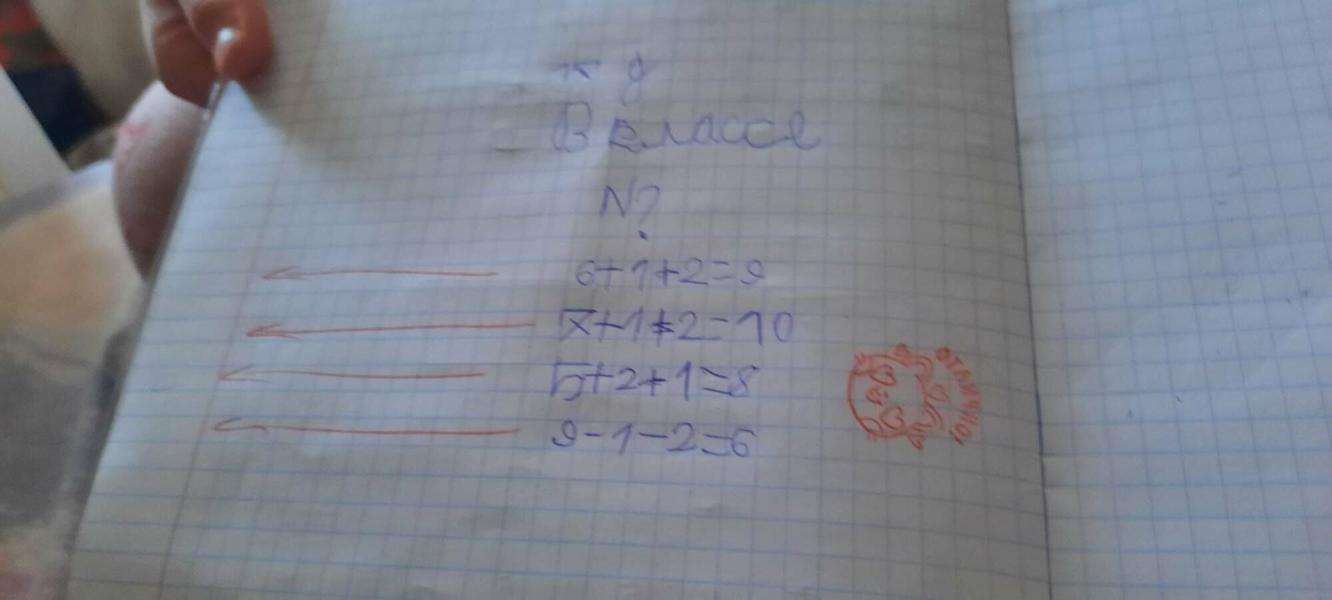 В классе
N?
6+1+2=9
7+1+2=10
5+2+1=8
9-1-2=6
ОТЛИЧНО!